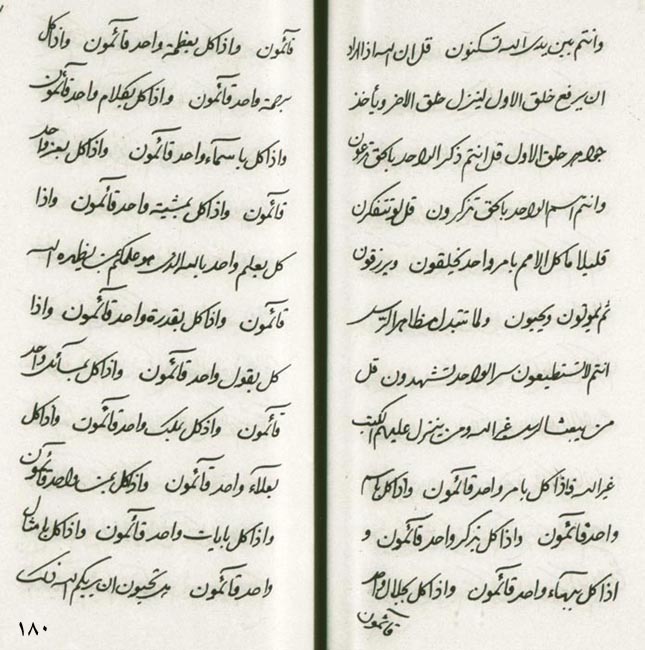 وانتم بين يدى الله تسكنون قل ان الله اذا اراد
ان يرفع خلق الاول لينزل خلق الاخر ويأخذ
جواهر خلق الاول قل انتم ذكر الواحد بالحق
وانتم اسم الواحد بالحق تذكرون قل لو تتفكرن
قليلا ما كل الامم بامر واحد يخلقون ويرزقون
ثم يموتون ويحيون ولما تتبدل مظاهر
انتم لا تستطيعون سر الواحد تشهدون قل
من يبعث الرسل غير الله ومن ينزل عليهم الكتب
غير الله فاذا كل بامر واحد قائمون واذا كل باسم
واحد قائمون واذا كل بذكر واحد قائمون و
اذا كل ببهاء واحد قائمون واذا كل بجلال واحد
قائمون
قائمون واذا كل بعظمة واحد قائمون واذا كل
برحمة واحد قائمون واذا كل بكلام واحد قائمون
واذا كل باسماء واحد قائمون واذا كل بعزة واحد
قائمون واذا كل بمشيته واحد قائمون واذا
كل بعلم واحد بالله الذى هو علمكم من يظهره الله
قائمون واذا كل بقدرة واحد قائمون واذا
كل بقول واحد قائمون واذا كل بمسائل واحد
قائمون واذ كل بملك واحد قائمون واذا كل
بعلاء واحد قائمون واذا كل بمن واحد قائمون
واذا كل بايات واحد قائمون واذا كل بامثال
واحد قائمون تحبون ان يريكم الله ذلك
١٨٠